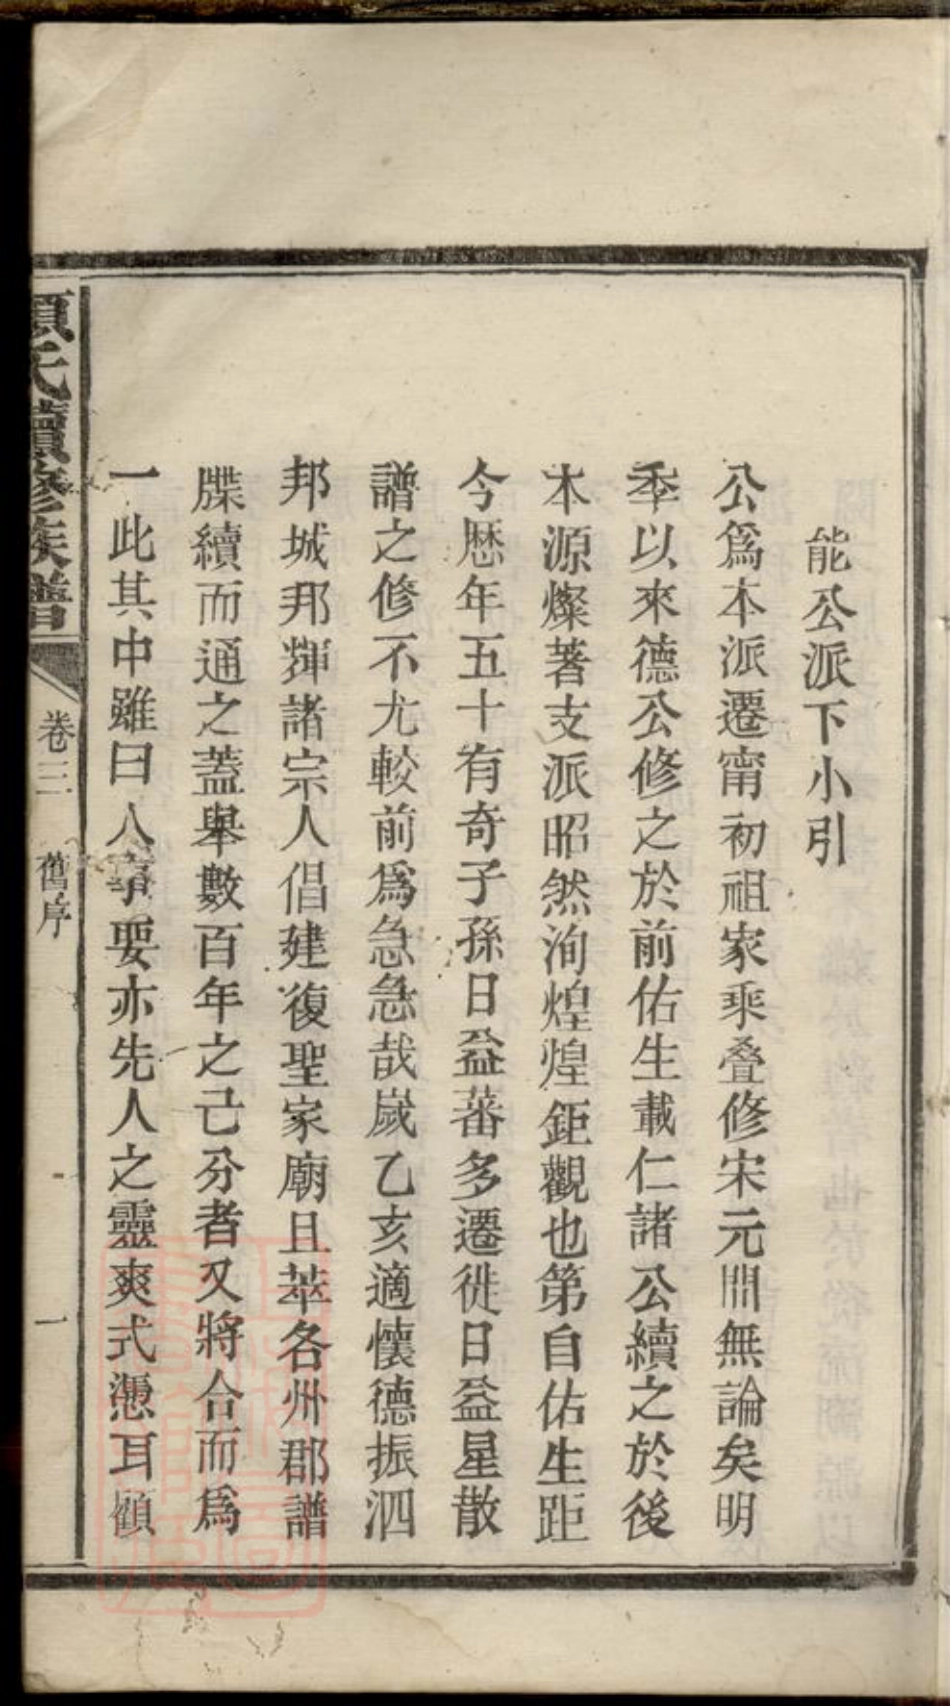 能公派下小引
公爲本派遷甯初祖家乘叠修宋元間無論矣明
季以來德公修之於前佑生載仁諸公續之於後
本源燦著支派昭然洵煌煌鉅觀也第自佑生距
今歷年五十有奇子孫日益蕃多遷徙日益星散
譜之修不尤較前爲急急哉歲乙亥適懷德振泗
邦城邦輝諸宗人倡建復聖家廟且萃各州郡譜
牒續而通之蓋舉數百年之已分者又將合而爲
一此其中雖曰人事要亦先人之靈爽式憑耳顧
顏氏續修族譜
卷三
舊序
一